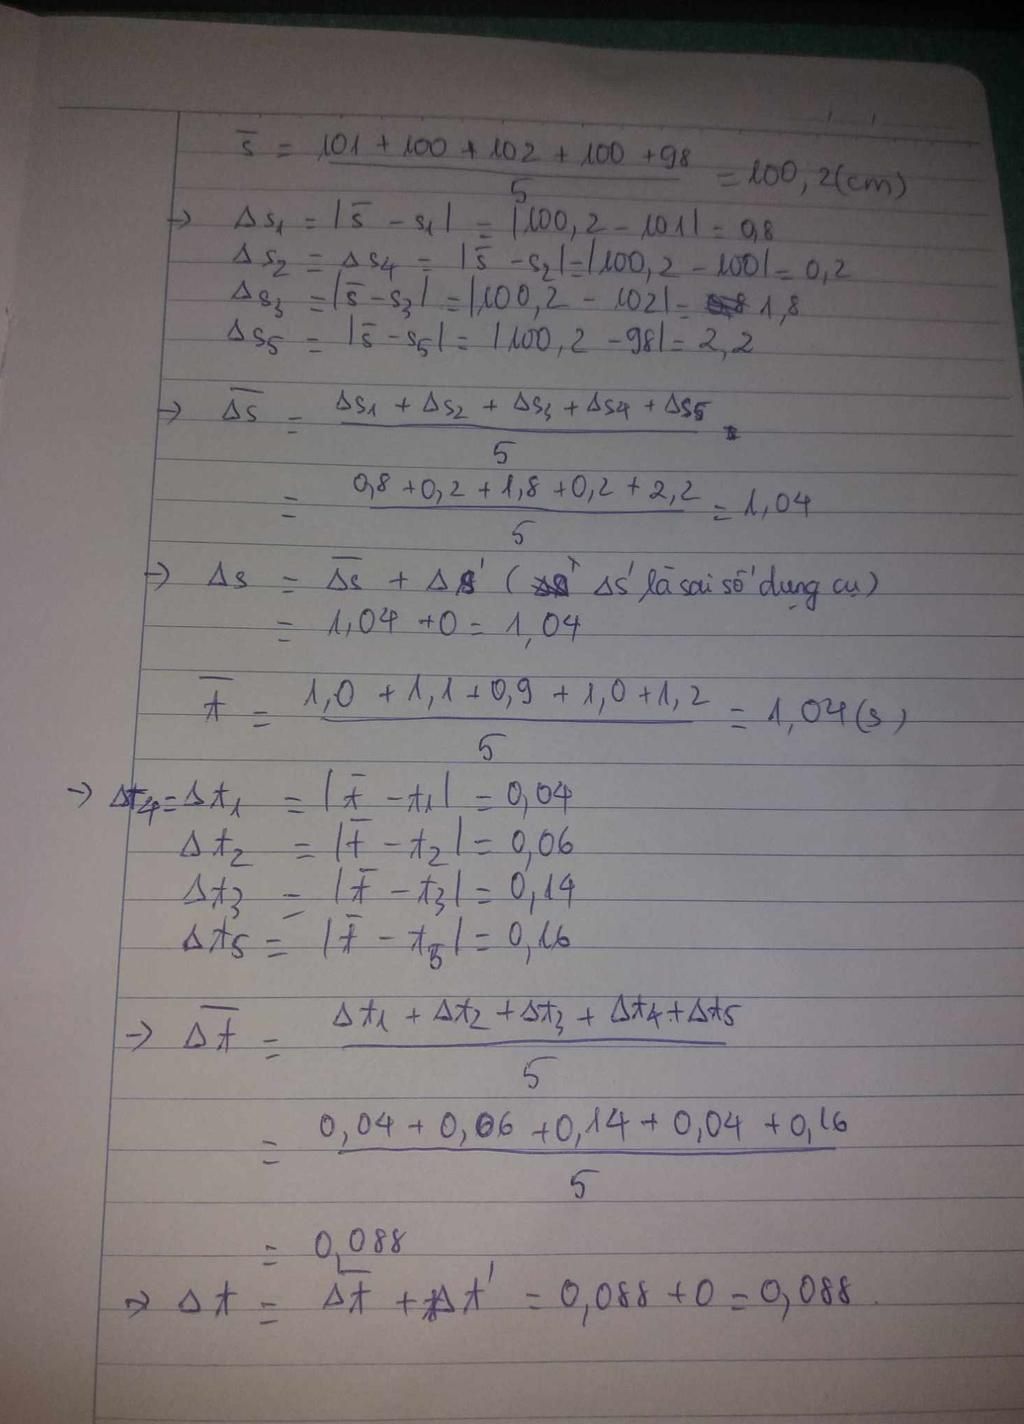 s̄ = (101 + 100 + 102 + 100 + 98)/5 = 100,2 (cm)
→ Δs₁ = |s̄ - s₁| = |100,2 - 101| = 0,8
Δs₂ = Δs₄ = |s̄ - s₂| = |100,2 - 100| = 0,2
Δs₃ = |s̄ - s₃| = |100,2 - 102| = 1,8
Δs₅ = |s̄ - s₅| = |100,2 - 98| = 2,2
→ Δs̄ = (Δs₁ + Δs₂ + Δs₃ + Δs₄ + Δs₅)/5
= (0,8 + 0,2 + 1,8 + 0,2 + 2,2)/5 = 1,04
→ Δs = Δs̄ + Δs' (Δs' là sai số dụng cụ)
= 1,04 + 0 = 1,04
t̄ = (1,0 + 1,1 + 0,9 + 1,0 + 1,2)/5 = 1,04 (s)
→ Δt₄ = Δt₁ = |t̄ - t₁| = 0,04
Δt₂ = |t̄ - t₂| = 0,06
Δt₃ = |t̄ - t₃| = 0,14
Δt₅ = |t̄ - t₅| = 0,16
→ Δt̄ = (Δt₁ + Δt₂ + Δt₃ + Δt₄ + Δt₅)/5
= (0,04 + 0,06 + 0,14 + 0,04 + 0,16)/5
= 0,088
→ Δt = Δt̄ + Δt' = 0,088 + 0 = 0,088.